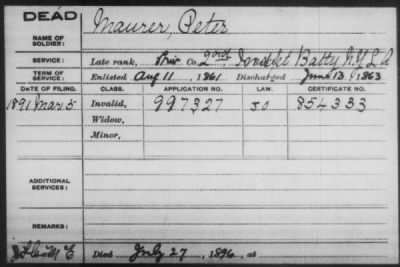 DEAD
NAME OF SOLDIER: Maurer, Peter
SERVICE: Late rank, Priv Co. 2nd Indpt Batty N.Y. L A
TERM OF SERVICE: Enlisted Aug 11, 1861 Discharged June 13, 1863
DATE OF FILING. CLASS. APPLICATION NO. LAW. CERTIFICATE NO.
1891 Mar 5 Invalid, 997327 JO 854333
Widow,
Minor,
ADDITIONAL SERVICES:
REMARKS:
Died July 27, 1896, at